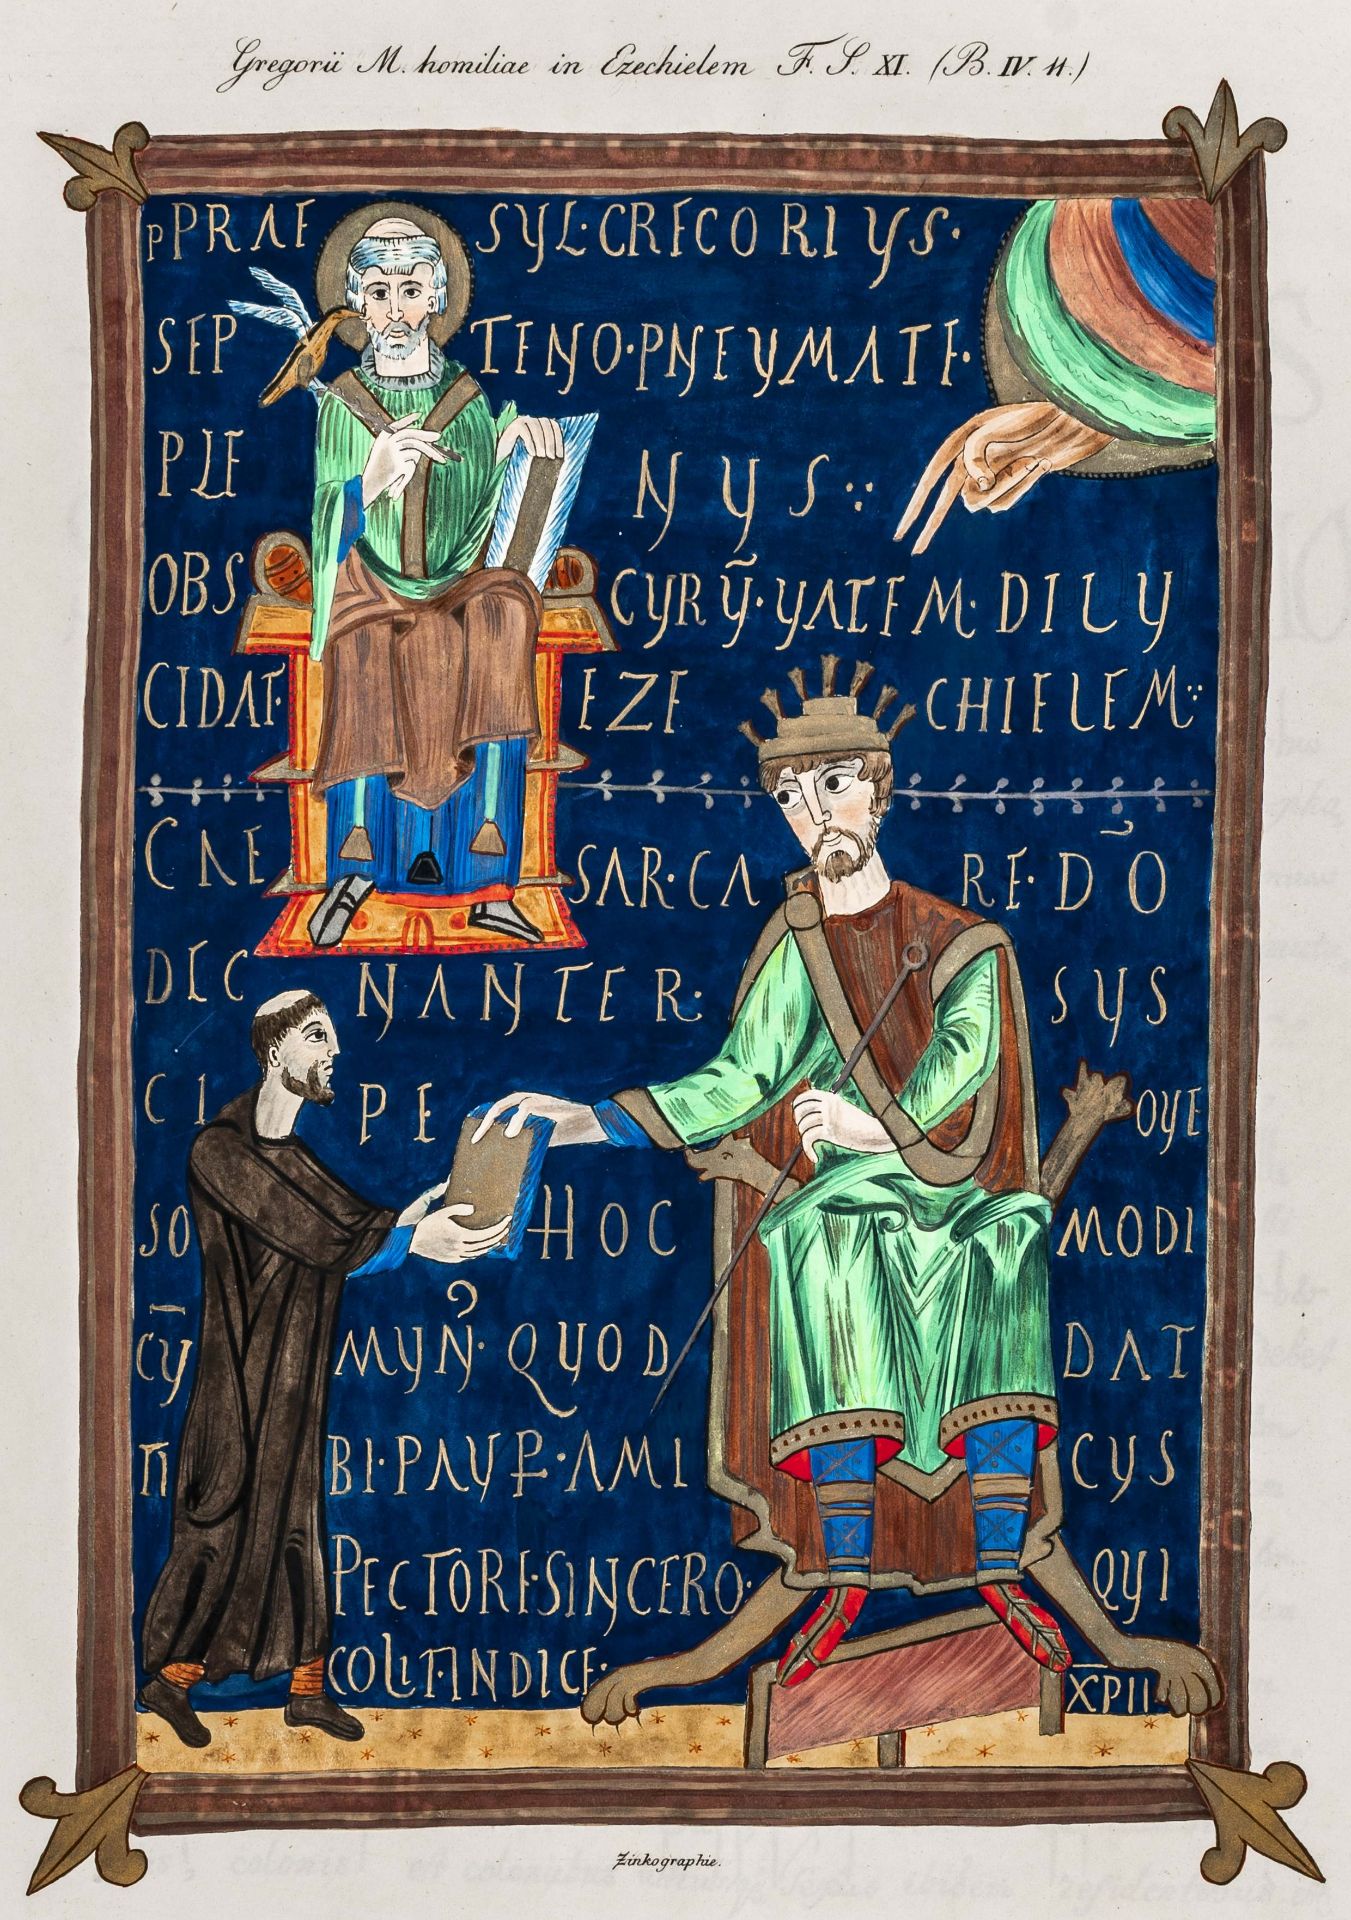 Gregorii M. homiliae in Ezechielem F. S. XI. (B. IV. 11.)
PPRAE SYL·GREGORIYS·
SEP TENO·PNEYMATE·
PLE NYS
OBS CYRỸ·YATEM·DILY
CIDAT· EZE CHIELEM
CAE SAR·CA RE·DŌO
DEC NANTER· SYS
CI PE OYE
SO HOC MODI
CȲ MYN· QUOD DAT
BI·PAYP·AMI CYS
PECTORE·SINCERO· QYI
COLIT·INDICE· X̄PII
Zinkographie.